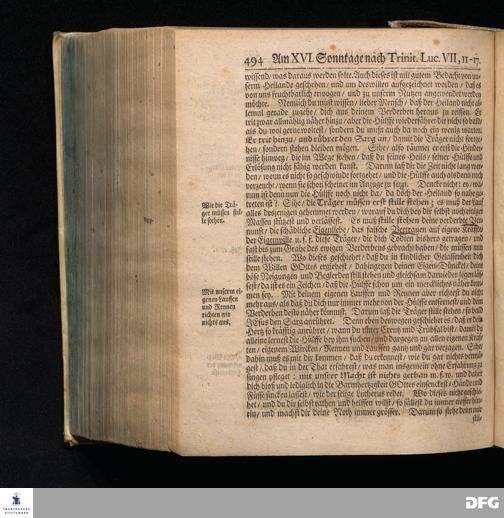 494 Am XVI. Sonntage nach Trinit. Luc. VII, 11-17.
wissend/ was daraus werden solte. Auch dieses ist mit gutem Bedacht von un-
serm Heilande geschehen/ und um deswillen aufgezeichnet worden/ daß es
von uns fruchtbarlich erwogen/ und zu unserm Nutzen angewendet werden
möchte. Nemlich du must wissen/ lieber Mensch/ daß der Heiland nicht al-
lemal gerade zugehe/ dich aus deinem Verderben heraus zu reissen. Er
tritt zwar allmählig näher hinzu/ aber die Hülffe wiederfähret dir nicht so bald/
als du wol gerne woltest/ sondern du must auch da noch ein wenig warten.
Er trit hinzu/ und rühret den Sarg an/ damit die Träger nicht fortge-
hen/ sondern stehen bleiben mögen. Sihe/ also räumet er erst die Hinder-
nisse hinweg/ die im Wege stehen/ daß du seines Heils/ seiner Hülffe und
Erlösung nicht fähig werden kanst. Darum laß dir die Zeit nicht lang wer-
den/ wenn es nicht so geschwinde fortgehet/ und die Hülffe auch als denn noch
verzeucht/ wenn sie schon scheinet im Anzuge zu seyn. Dencke nicht: ey/ wa-
rum ist denn nun die Hülffe noch nicht da/ da doch der Heiland so nahe ge-
treten ist? Sihe/ die Träger müssen erst stille stehen; es muß der Lauf
alles desjenigen gehemmet werden/ worauf du dich bes dir selbst noch einiger
Massen stützest und verlässest. Es muß stille stehen deine verderbte Ver-
nunft/ die schädliche Eigenliebe/ das falsche Vertrauen auf eigene Kräffte/
der Eigenwille u. s. f. diese Träger/ die dich Todten bishero getragen/ und
fast bis zum Grabe des ewigen Verderbens gebracht haben/ die müssen nun
stille stehen. Wo dieses geschiehet/ daß du in kindlicher Gelassenheit dich
dem Willen GOttes ergiebest/ dahingegen deinen Eigen-Dünckel/ deine
böse Neigungen und Begierden still stehen und gleichsam darnieder legen läs-
sest/ da ist es ein Zeichen/ daß die Hülffe schon um ein merckliches näher kom-
men sey. Mit deinem eigenen Lauffen und Rennen aber richtest du nicht
mehr aus/ als daß du dich nur immer mehr von der Hülffe entfernest/ und dem
Verderben desto näher kömmst. Darum laß die Träger stille stehen/ so bald
JEsus den Sarg anrühret. Denn eben deswegen geschiehet es/ daß er dein
Hertz so kräfftig anrühret/ wann du unter Creutz und Trübsal bist/ damit du
alleine lernest die Hülffe bey ihm suchen/ und dargegen an allen eigenen Kräf-
ten/ eigenem Wircken/ Rennen und Lauffen gantz und gar verzagen. Eher
dahin muß es mit dir kommen/ daß du erkennest/ wie du gar nichts vermö-
gest/ daß du in der That erfährest/ was man insgemein ohne Erfahrung zu
singen pfleget: mit unsrer Macht ist nichts gethan u. s. w. und daher
dich bloß und lediglich in die Barmhertzigkeit GOttes einsenckest/ Hände und
Füsse sincken lässest/ wie der selige Lutherus redet. Wo dieses nicht geschie-
het/ und du dir selbst rathen und helffen wilst/ so fällest du immer tieffer hin-
ein/ und machst dir deine Noth immer grösser. Darum so stehe denn nur
stil-
Wie die Trä-
ger müssen stil-
le stehen.
Mit unserm ei-
genen Lauffen
und Rennen
richten wir
nichts aus.
FRANCKESCHE
STIFTUNGEN
DFG